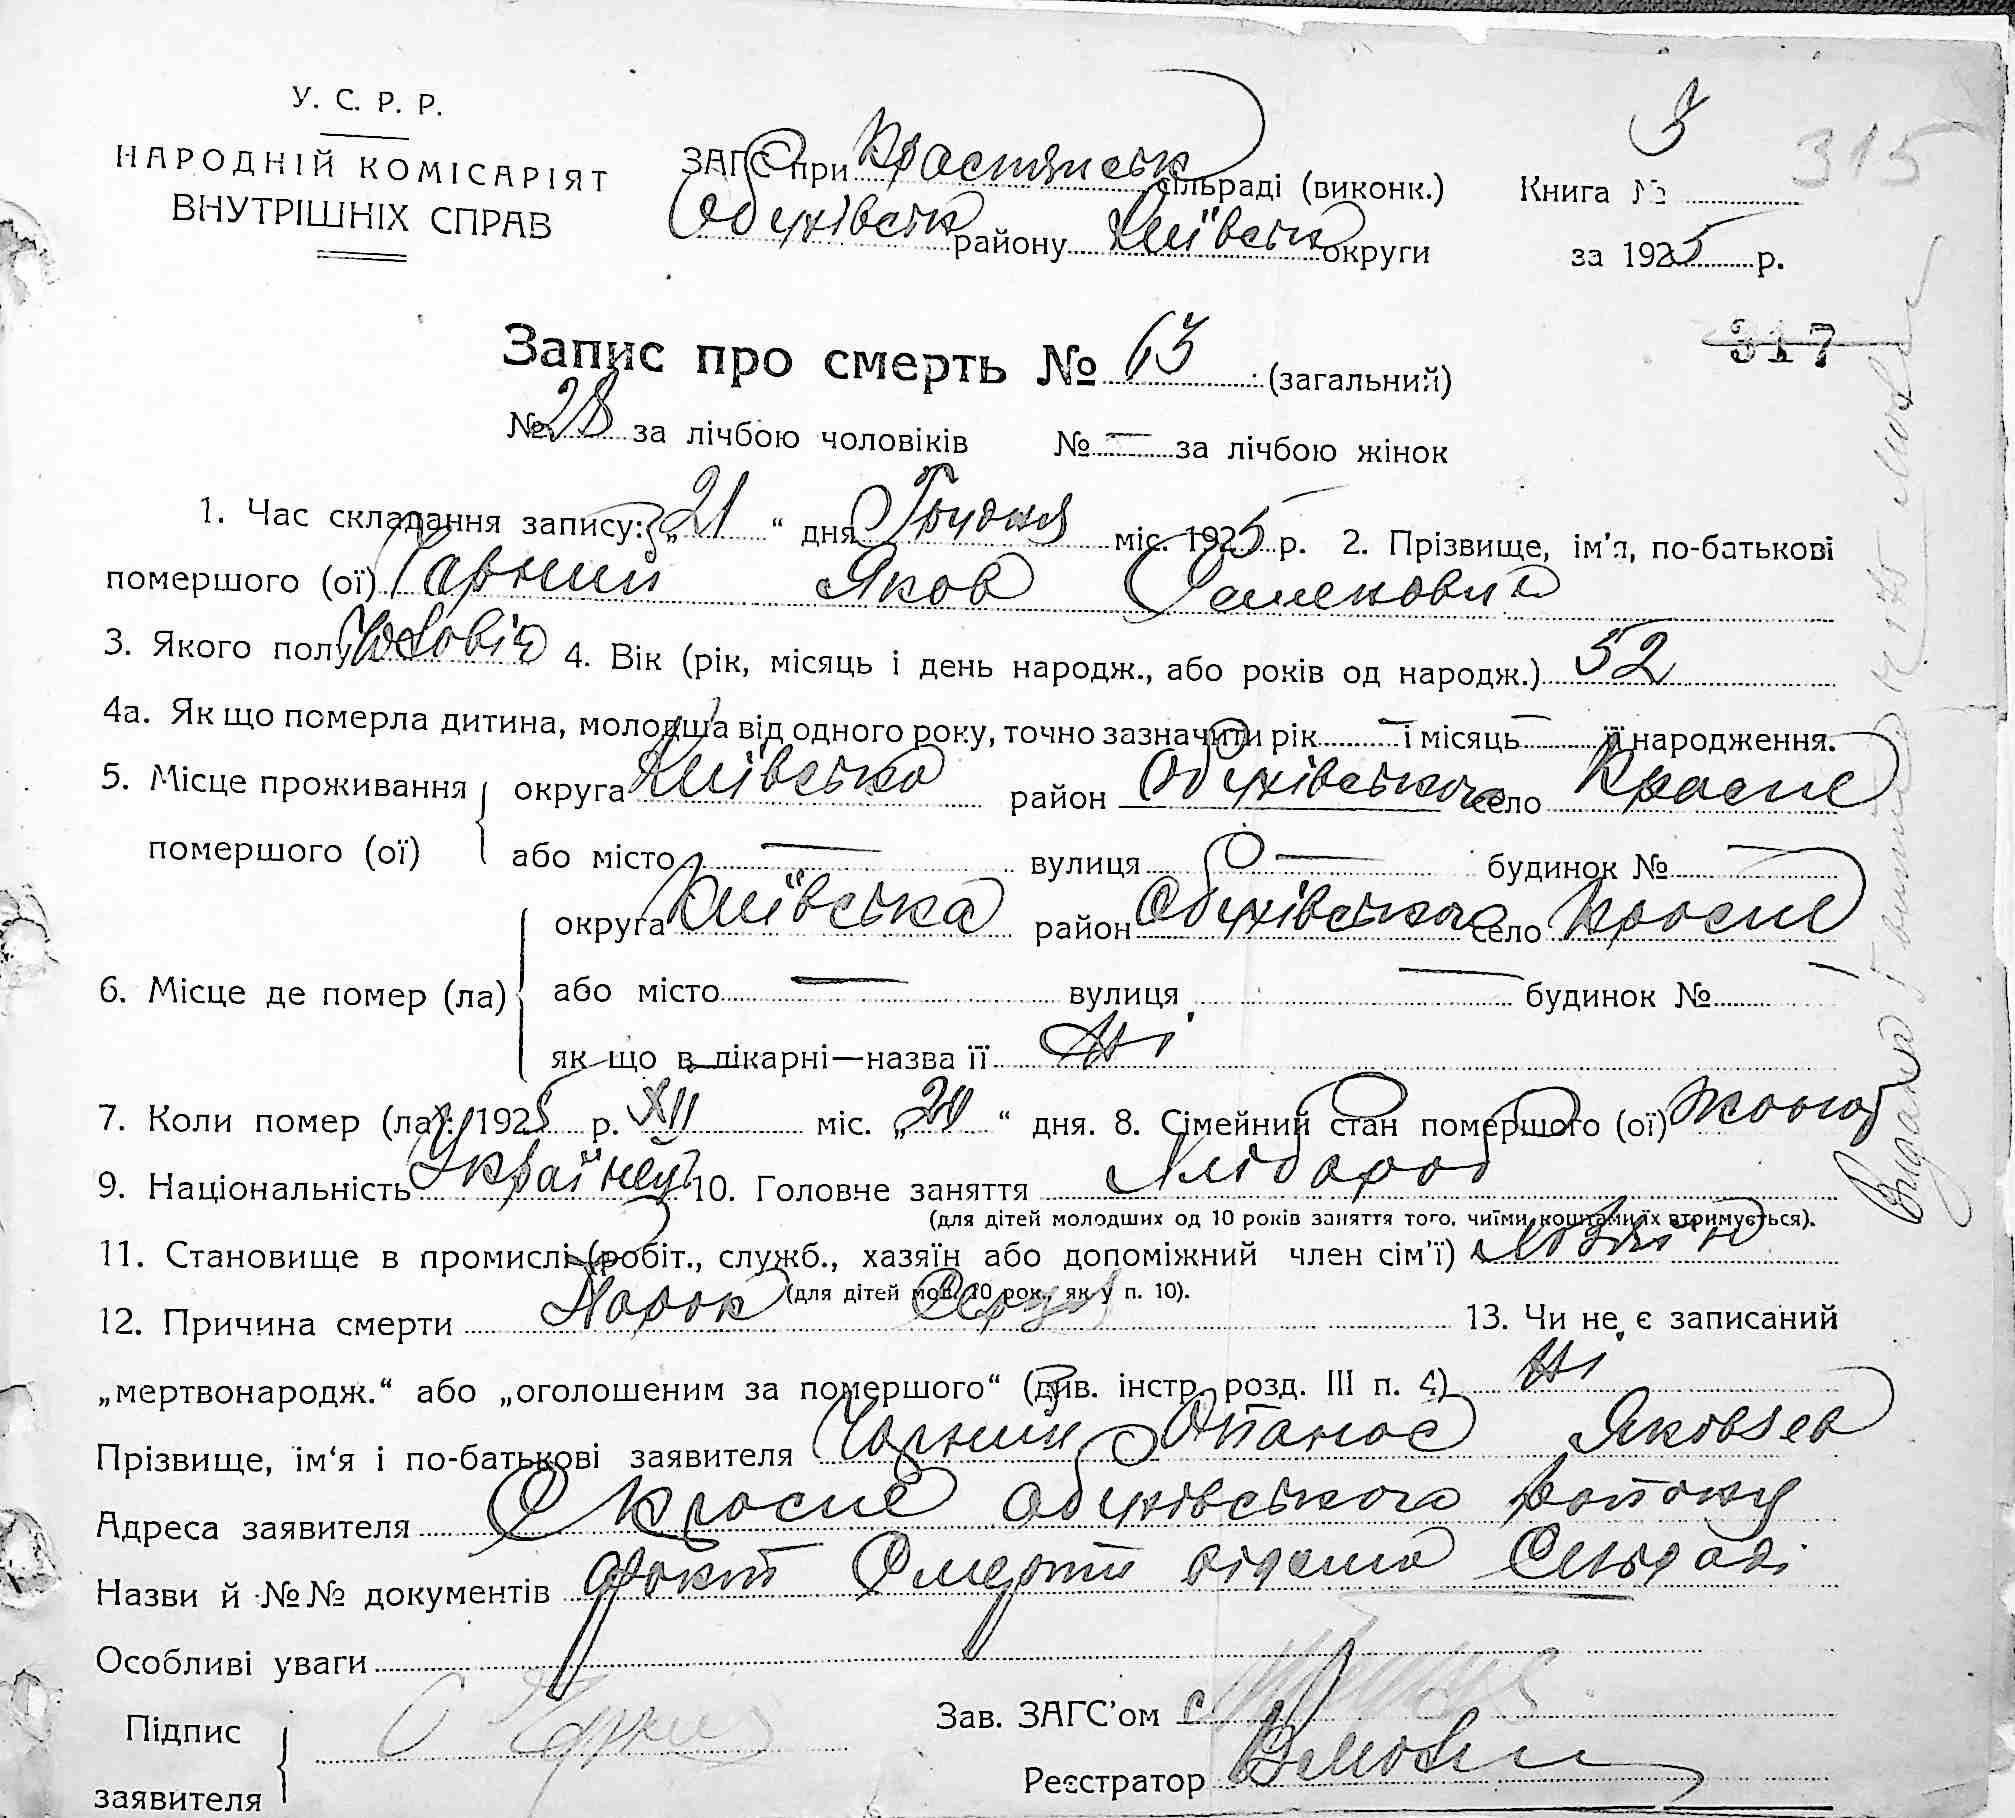 У. С. Р. Р.
НАРОДНІЙ КОМІСАРІЯТ
ВНУТРІШНІХ СПРАВ
ЗАГС при Краснянськ сільраді (виконк.)
Обухівськ району Київськ округи
3
315
Книга №
за 1925 р.
317
Запис про смерть № 63 (загальний)
№ 28 за лічбою чоловіків № — за лічбою жінок
1. Час складання запису: „21“ дня Грудня міс. 1925 р. 2. Прізвище, ім'я, по-батькові
помершого (ої) Чорний Яков Семенович
3. Якого полу Чоловіч 4. Вік (рік, місяць і день народж., або років од народж.) 52
4а. Як що померла дитина, молодша від одного року, точно зазначити рік — і місяць — її народження.
5. Місце проживання помершого (ої) округа Київська район Обухівського село Красне
або місто — вулиця — будинок № —
6. Місце де помер (ла) округа Київська район Обухівського село Красне
або місто — вулиця — будинок № —
як що в лікарні—назва її Ні
7. Коли помер (ла): 1925 р. XII міс. „20“ дня. 8. Сімейний стан помершого (ої) Жонат
9. Національність Українець 10. Головне заняття Хлібороб
(для дітей молодших од 10 років заняття того, чиїми коштами їх втримується).
11. Становище в промислі (робіт., служб., хазяїн або допоміжний член сім'ї) Хозяїн
(для дітей мол. 10 рок., як у п. 10).
12. Причина смерти Порок Серця 13. Чи не є записаний
„мертвонародж.“ або „оголошеним за помершого“ (див. інстр. розд. III п. 4) Ні
Прізвище, ім'я і по-батькові заявителя Чорний Опанос Яковлев
Адреса заявителя С Красне Обухівського Району
Назви й №№ документів факт Смерти відомо Сільраді
Особливі уваги
Підпис заявителя О Чорний
Зав. ЗАГС'ом
Реєстратор